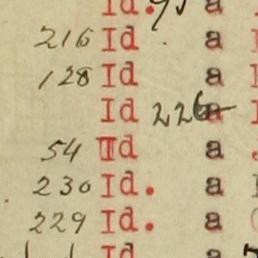 Id. 95 a
216 Id a
128 Id a
Id 226 a
54 Id a
230 Id. a
229 Id. a
Id a